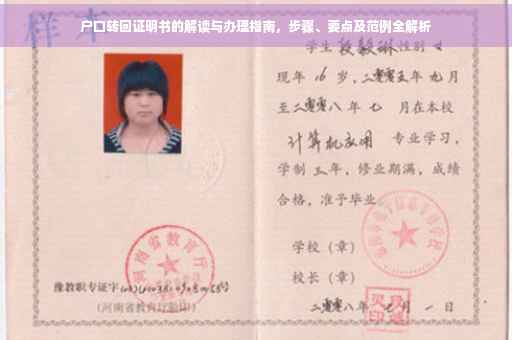 户口转回证明书的解读与办理指南，步骤、要点及范例全解析
样本
学生段毅琳性别女
现年16岁，二零零五年九月
至二零零八年七月在本校
计算机应用 专业学习，
学制三年，修业期满，成绩
合格，准予毕业。
学校（章）
校长（章）
二零零八年 月一日
河南省教育厅
豫教职专证字
（河南省教育厅验印）